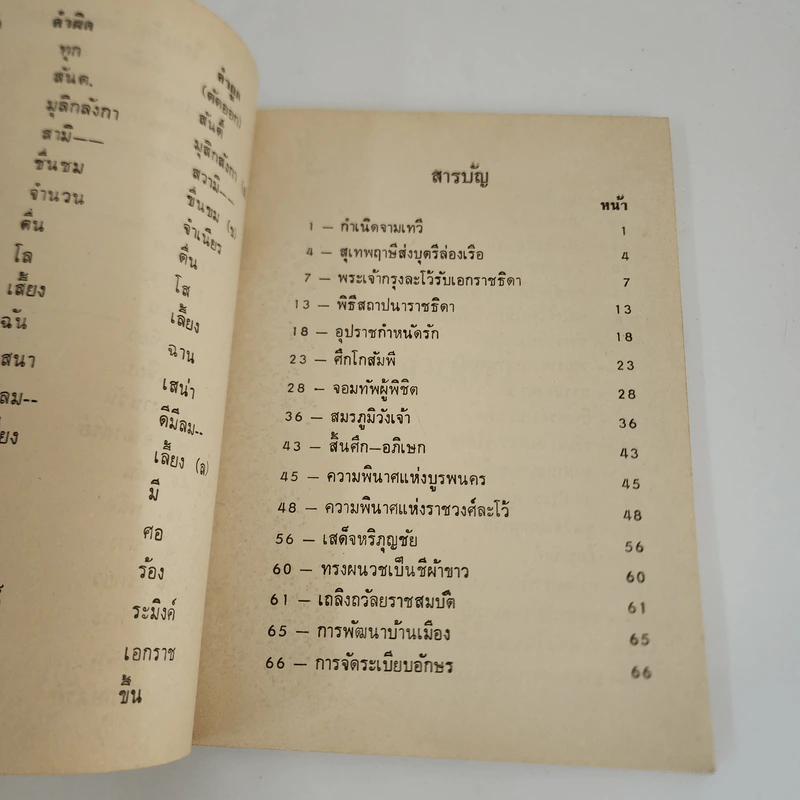 คำผิด
คำถูก
ทุก
(ตัดออก)
สันต.
สันตี
มุลิกลังกา
มุลิกลังกา
สามิ--
สวามิ--
ชื่นชม
ชื่นชม (ข)
จำนวน
จำเนียร
ตื่น
ตื่น
โล
โส
เสี้ยง
เลี้ยง
ฉัน
ฉาน
เสนา
เสน่า
ลม--
ดีมีลม--
เลี้ยง (ล)
มี
ศอ
ร้อง
ระมิงค์
เอกราช
ขึ้น
สารบัญ
หน้า
1 – กำเนิดจามเทวี 1
4 – สุเทพฤาษีส่งบุตรีล่องเรือ 4
7 – พระเจ้ากรุงละโว้รับเอกราชธิดา 7
13 – พิธีสถาปนาราชธิดา 13
18 – อุปราชกำหนัดรัก 18
23 – ศึกโกสัมพี 23
28 – จอมทัพผู้พิชิต 28
36 – สมรภูมิวังเจ้า 36
43 – สิ้นศึก–อภิเษก 43
45 – ความพินาศแห่งบูรพนคร 45
48 – ความพินาศแห่งราชวงศ์ละโว้ 48
56 – เสด็จหริภุญชัย 56
60 – ทรงผนวชเป็นชีผ้าขาว 60
61 – เถลิงถวัลยราชสมบัติ 61
65 – การพัฒนาบ้านเมือง 65
66 – การจัดระเบียบอักษร 66